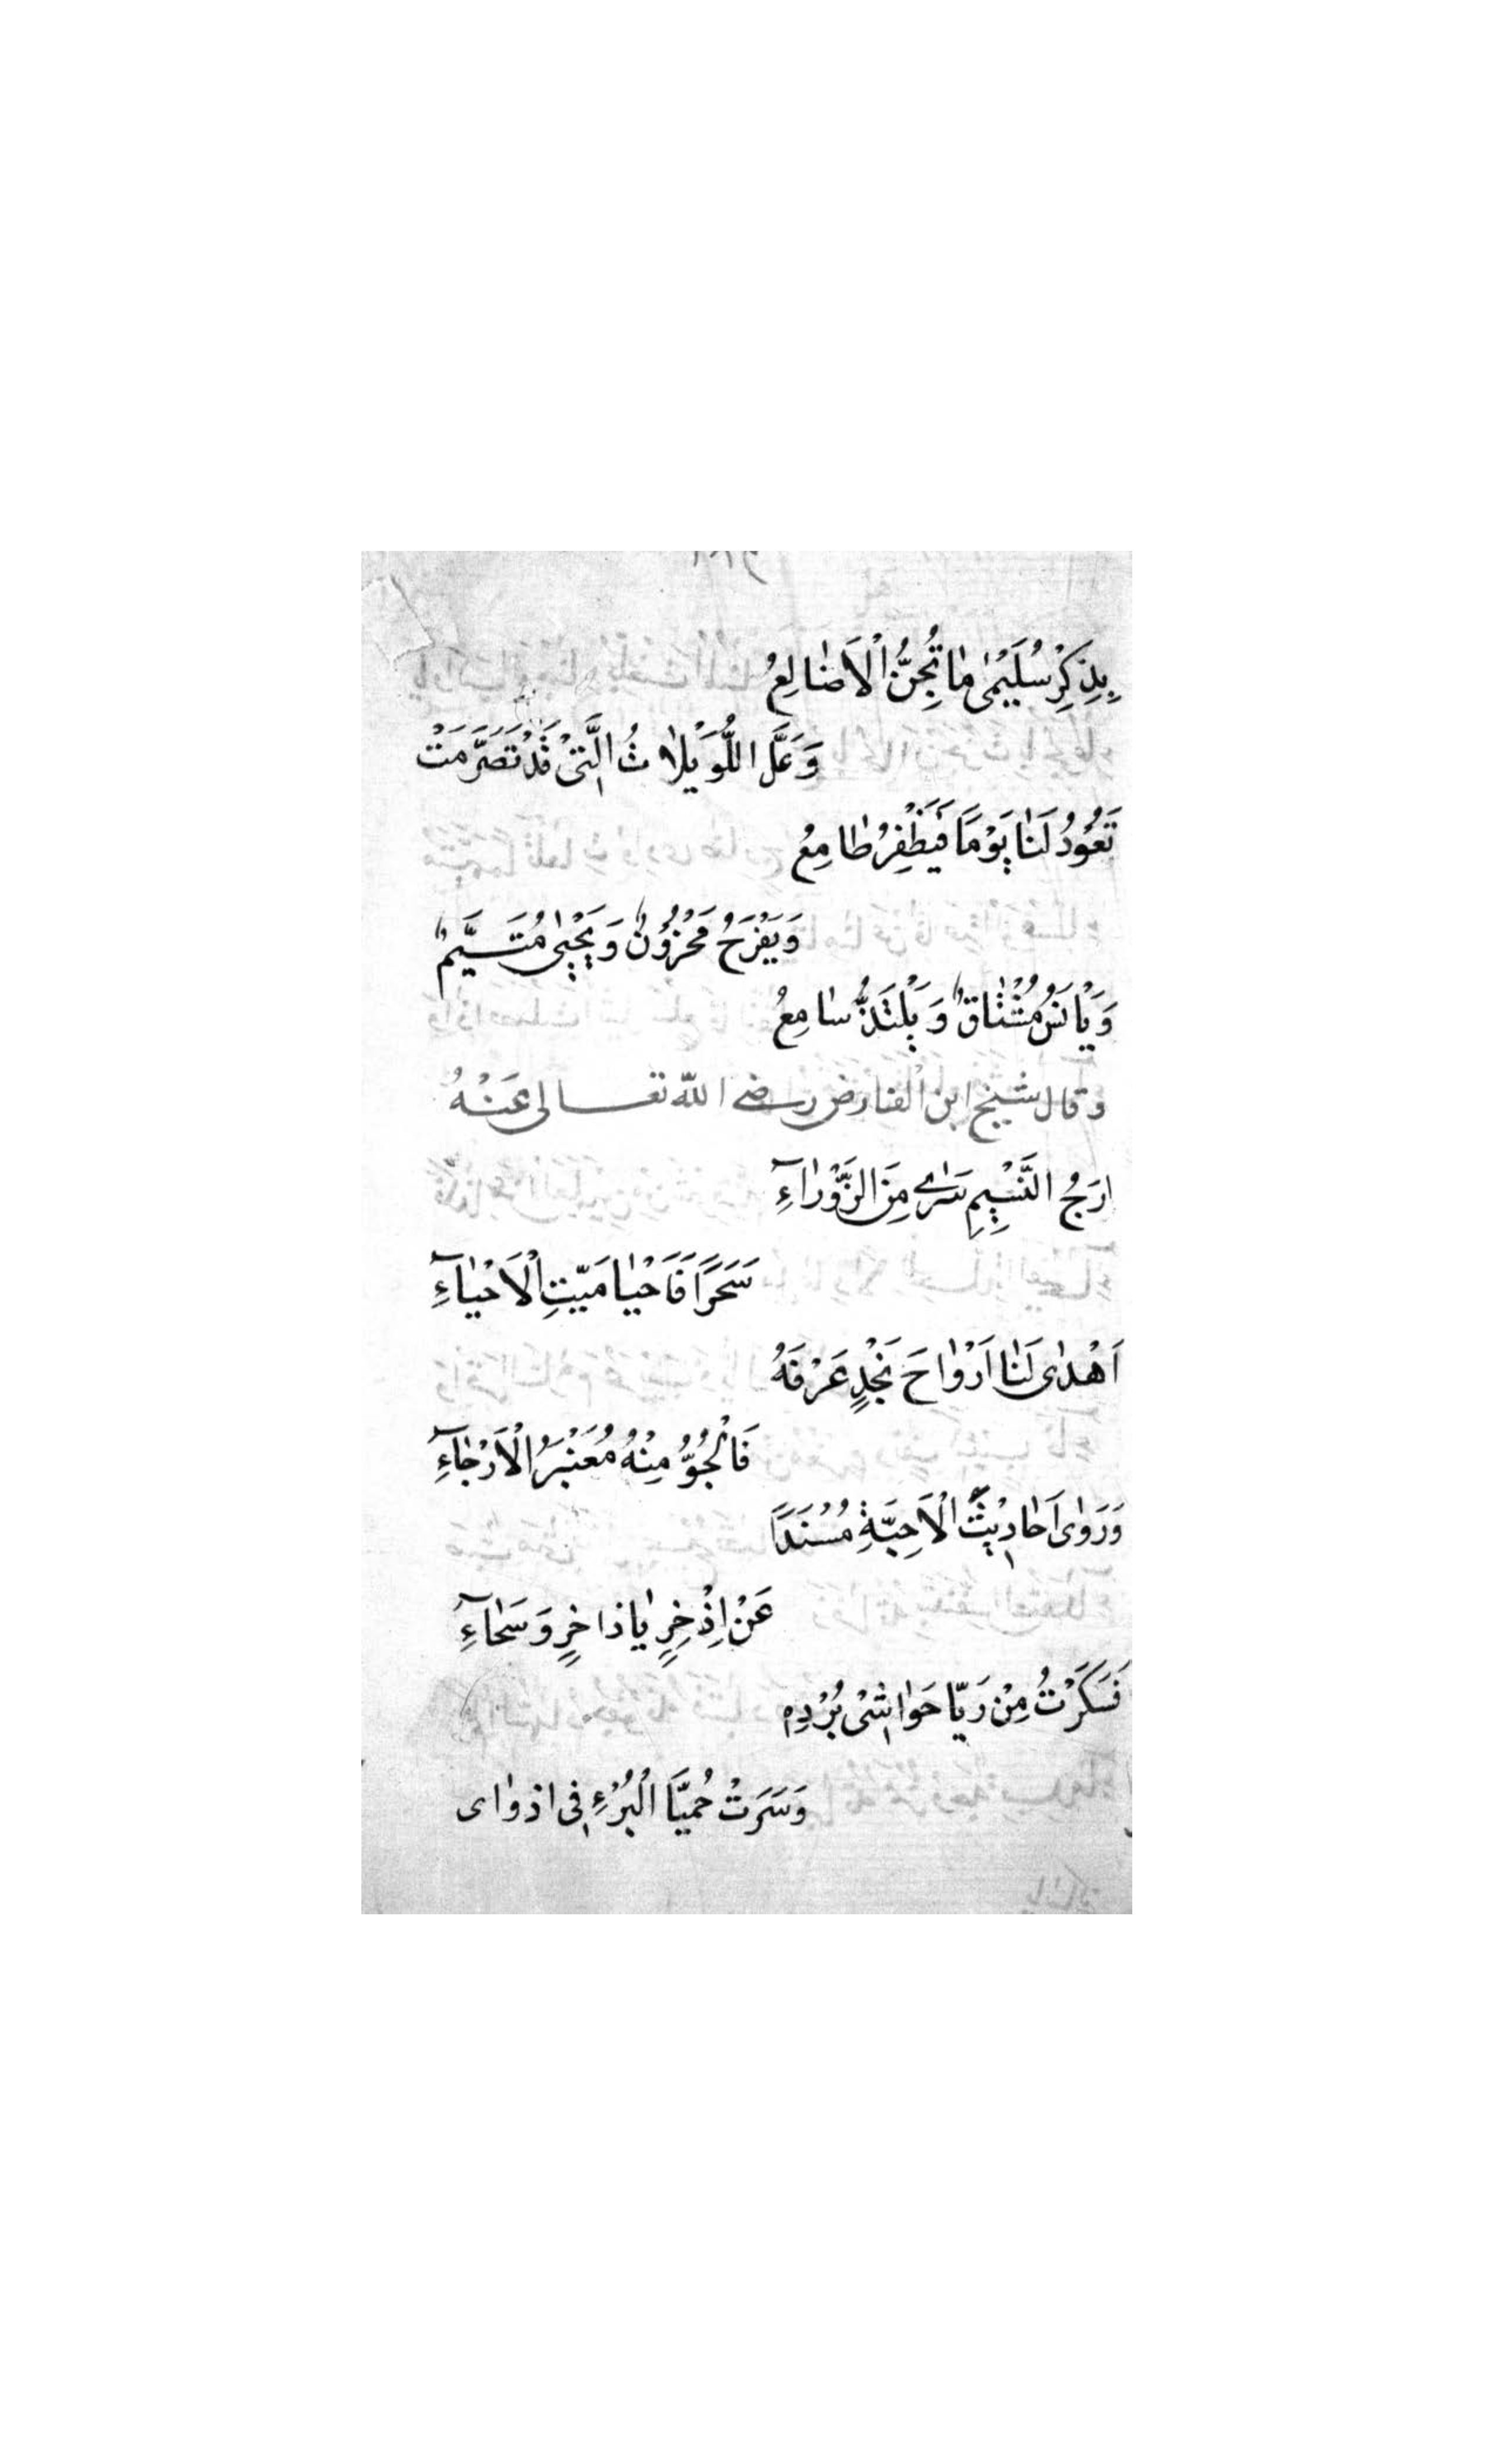 بِذِكِرْ سُلَيْمٰى مٰا تُجِنُّ الْاَضٰالِعُ
وَعَلَّ اللُّوَيْلاٰتُ الَّتىْ قَدْ تَصَرَّمَتْ
تَعُودُ لَنٰا يَوْمًا فَيَظْفِرْ طٰامِعُ
وَيَفْرَحُ مَحْزُونٌ وَيَحْيٰى مُتَيَّمٌ
وَيَاْنَسُ مُشْتٰاقٌ وَيَلْتَذُّ سٰامِعُ
وقال شيخ ابن الْفارض رضى الله تعالى عَنْهُ
ارَجُ النَّسِيْمِ سَرٰى مِنَ الزَّوْرٰآءِ
سَحَرًا فَاَحْيٰا مَيِّتِ الْاَحْيٰآءِ
اَهْدٰى لَنٰا اَرْوٰاحَ نَجْدٍ عَرْفَهُ
فَالْجُوُّ مِنْهُ مُعَنْبَرُ الْاَرْجٰآءِ
وَرَوٰى اَحٰادِيْثَ الْاَحِبَّةِ مُسْنَدًا
عَنْ اِذْخِرٍ يٰاذاخِرٍ وَسَحٰآءِ
فَسَكَرْتُ مِنْ رَيّا حَوٰاشىْ بُرْدِهِ
وَسَرَتْ حُمَيَّا الْبُرْءِ فى اذوٰاى